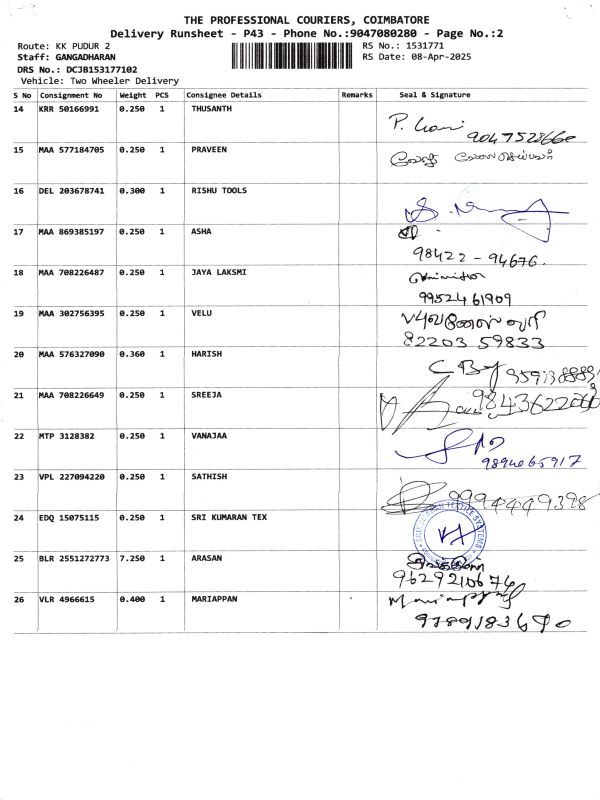 THE PROFESSIONAL COURIERS, COIMBATORE
Delivery Runsheet - P43 - Phone No.:9047080280 - Page No.:2
Route: KK PUDUR 2 RS No.: 1531771
Staff: GANGADHARAN RS Date: 08-Apr-2025
DRS No.: DCJB153177102
Vehicle: Two Wheeler Delivery
S No Consignment No Weight PCS Consignee Details Remarks Seal & Signature
14 KRR 50166991 0.250 1 THUSANTH
15 MAA 577184705 0.250 1 PRAVEEN
16 DEL 203678741 0.300 1 RISHU TOOLS
17 MAA 869385197 0.250 1 ASHA
98422 - 94676.
18 MAA 708226487 0.250 1 JAYA LAKSMI
9952461909
19 MAA 302756395 0.250 1 VELU
82203 59833
20 MAA 576327090 0.360 1 HARISH
21 MAA 708226649 0.250 1 SREEJA
22 MTP 3128382 0.250 1 VANAJAA
9894065917
23 VPL 227094220 0.250 1 SATHISH
9994449398
24 EDQ 15075115 0.250 1 SRI KUMARAN TEX
25 BLR 2551272773 7.250 1 ARASAN
9629210674
26 VLR 4966615 0.400 1 MARIAPPAN
Mariappan